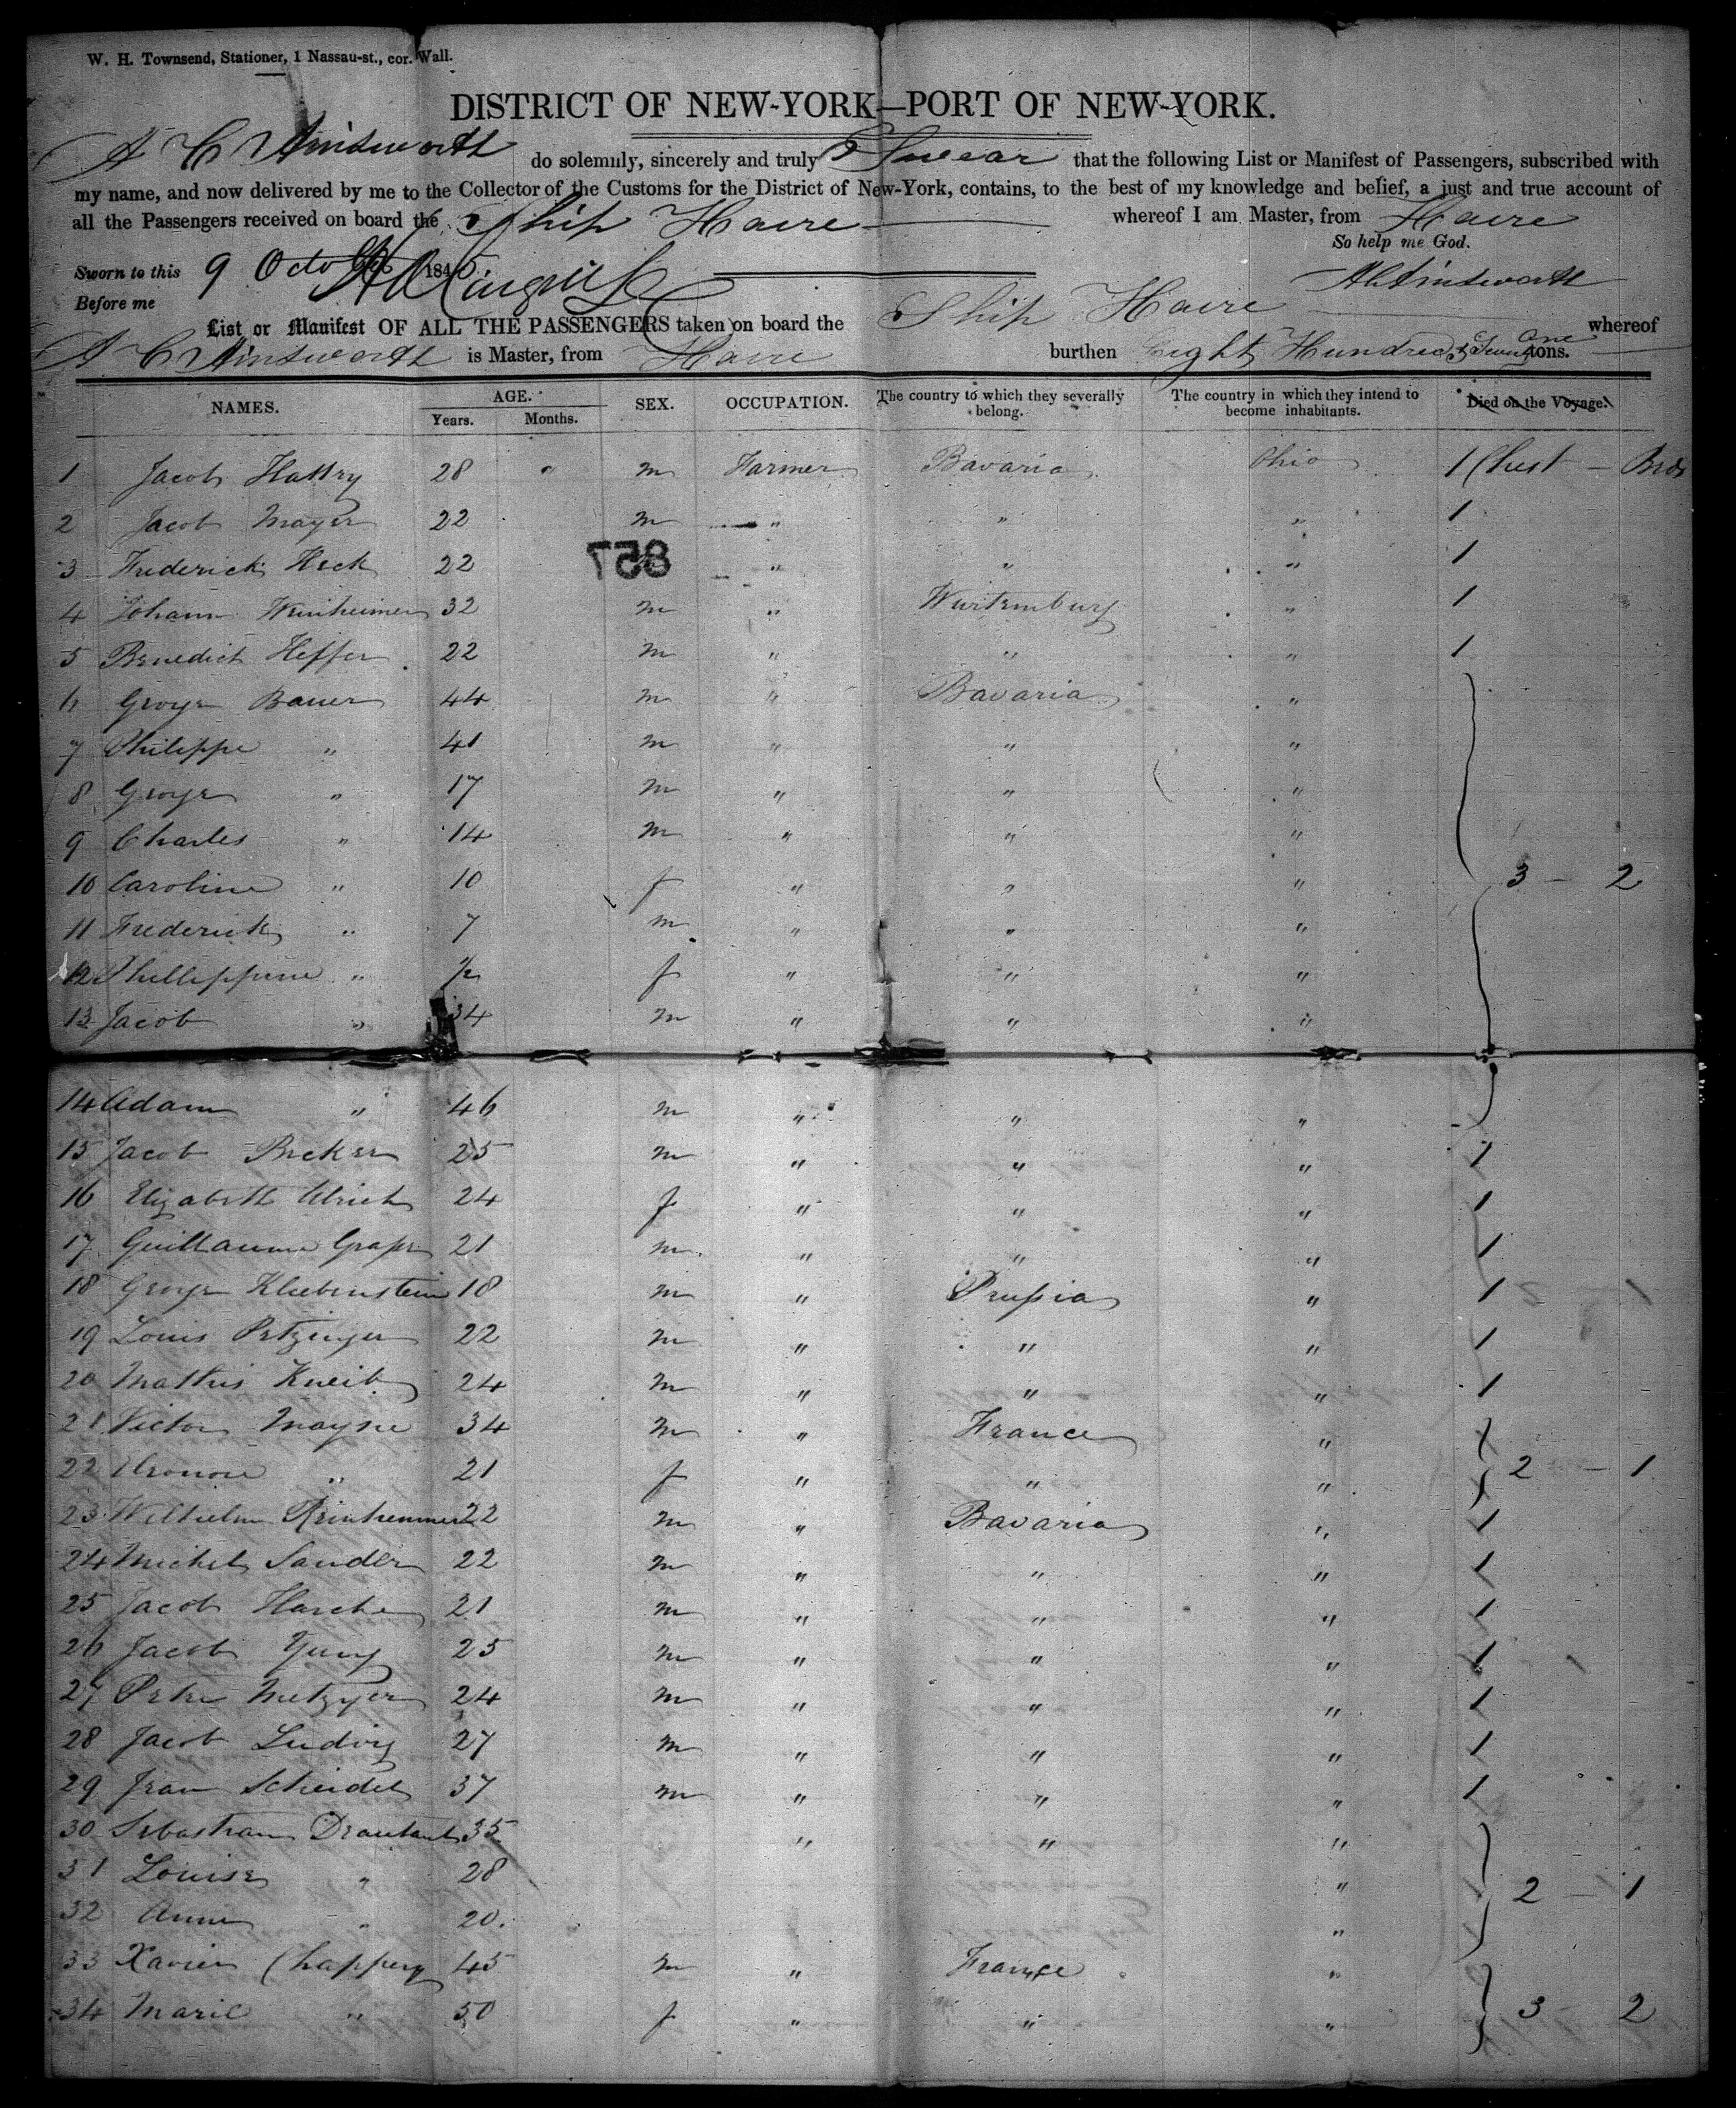 W. H. Townsend, Stationer, 1 Nassau-st., cor. Wall.
DISTRICT OF NEW-YORK—PORT OF NEW-YORK.
A C Ainsworth do solemnly, sincerely and truly Swear that the following List or Manifest of Passengers, subscribed with
my name, and now delivered by me to the Collector of the Customs for the District of New-York, contains, to the best of my knowledge and belief, a just and true account of
all the Passengers received on board the Ship Havre whereof I am Master, from Havre
So help me God.
Sworn to this 9 Octo 184
A C Ainsworth
Before me
List or Manifest OF ALL THE PASSENGERS taken on board the Ship Havre whereof
A C Ainsworth is Master, from Havre burthen Eight Hundred & Seventy One tons.
NAMES. AGE. Years. Months. SEX. OCCUPATION. The country to which they severally belong. The country in which they intend to become inhabitants. Died on the Voyage.
1 Jacob Hattry 28 " m Farmer Bavaria Ohio 1 Chest —
2 Jacob Mayer 22 m " " " 1
3 Frederick Heck 22 857 " " " 1
4 Johann Weinheimer 32 m " Wurtemburg " 1
5 Benedict Heffer 22 m " " " 1
6 George Bauer 44 m " Bavaria "
7 Philippe " 41 m " " "
8 George " 17 m " " "
9 Charles " 14 m " " "
10 Caroline " 10 f " " " 3 — 2
11 Frederick " 7 m " " "
12 Phillippine " ½ f " " "
13 Jacob " 34 m " " "
14 Adam " 46 m " " "
15 Jacob Becker 25 m " " " 1
16 Elizabeth Ulrich 24 f " " " 1
17 Guillaume Graser 21 m " " " 1
18 George Kliebenstein 18 m " Prussia " 1
19 Louis Petzinger 22 m " " " 1
20 Mathis Kneib 24 m " " " 1
21 Victor Mayne 34 m " France "
22 " 21 f " " " 2 — 1
23 Wilhelm 22 m " Bavaria " 1
24 Michel Sander 22 m " " " 1
25 Jacob Harche 21 m " " " 1
26 Jacob Yung 25 m " " " 1
27 Peter Metzger 24 m " " " 1
28 Jacob Ludwig 27 m " " " 1
29 Jean Scheidel 37 m " " " 1
30 Sebastian 35 " " "
31 Louise " 28 " 2 — 1
32 Anne " 20. "
33 Xavier Chappuy 45 m " France "
34 Marie " 50 f " " " 3 — 2